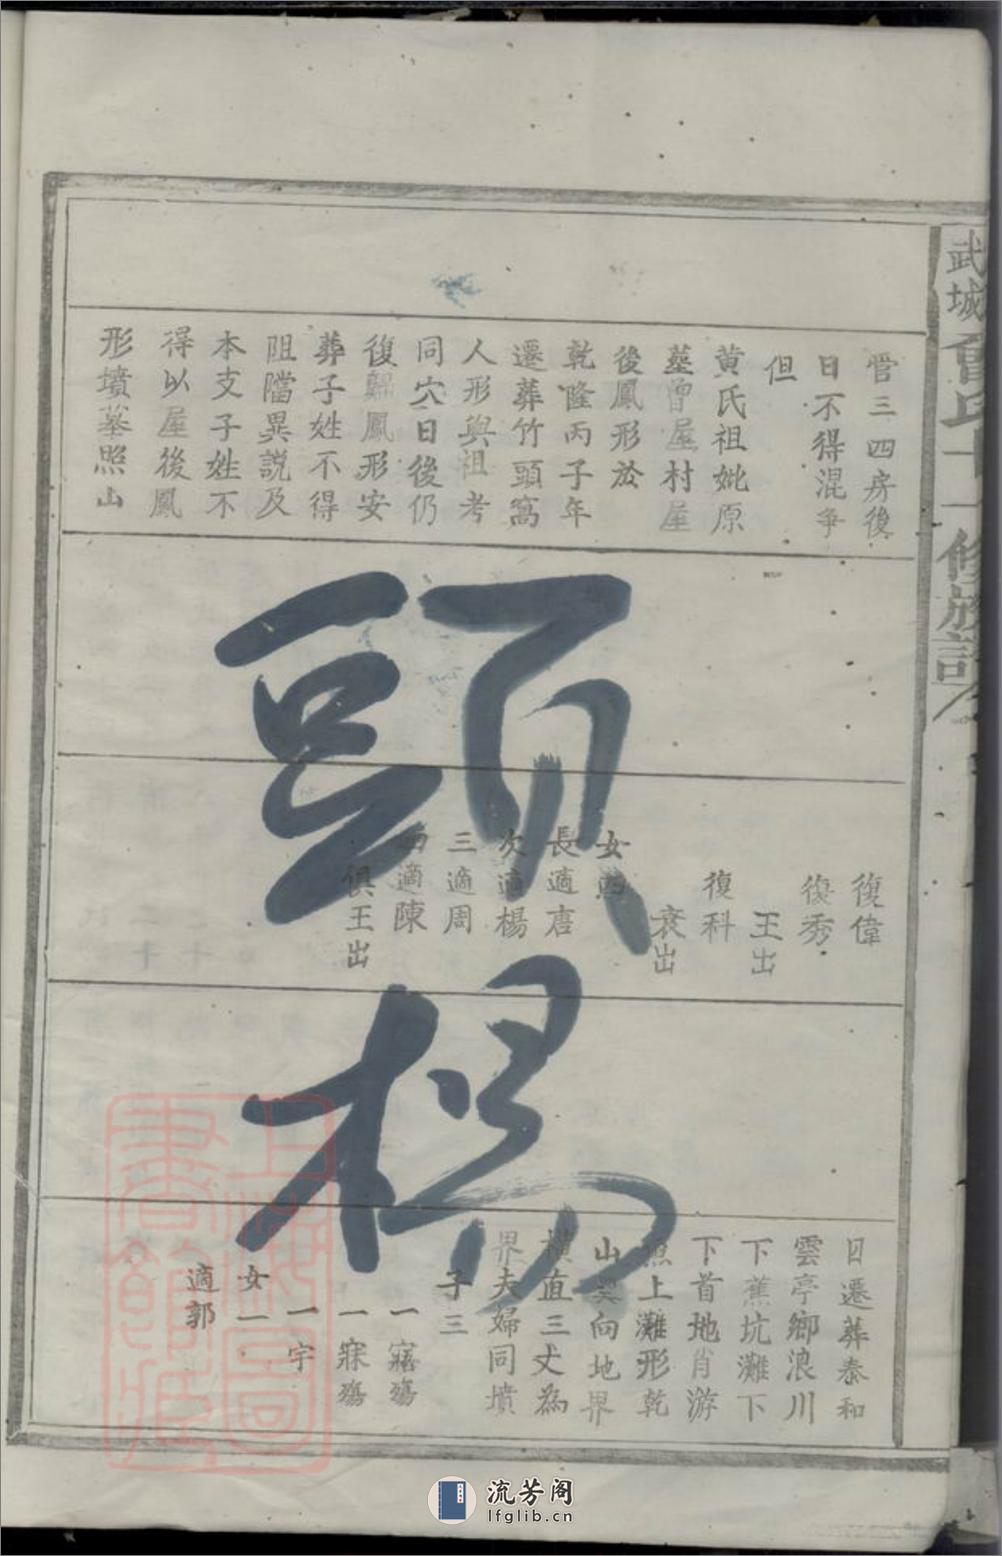 武城曾氏十一修族譜
管三四房後
日不得混爭
但
黄氏祖妣原
墓曾屋村屋
後鳳形於
乾隆丙子年
遷葬竹頭窩
人形與祖考
同穴日後仍
復歸鳳形安
葬子姓不得
阻擋異説及
本支子姓不
得以屋後鳳
形墳墓照山
復偉
復秀
王出
復科
袁出
女四
長適唐
次適楊
三適周
四適陳
俱王出
日遷葬泰和
雲亭鄉浪川
下蕉坑灘下
下首地肖游
魚上灘形乾
山巽向地界
橫直三丈為
界夫婦同墳
子三
一寤殤
一寐殤
一宇
女一
適郭
頭橋
上海圖書館藏
流芳阁
lfglib.cn